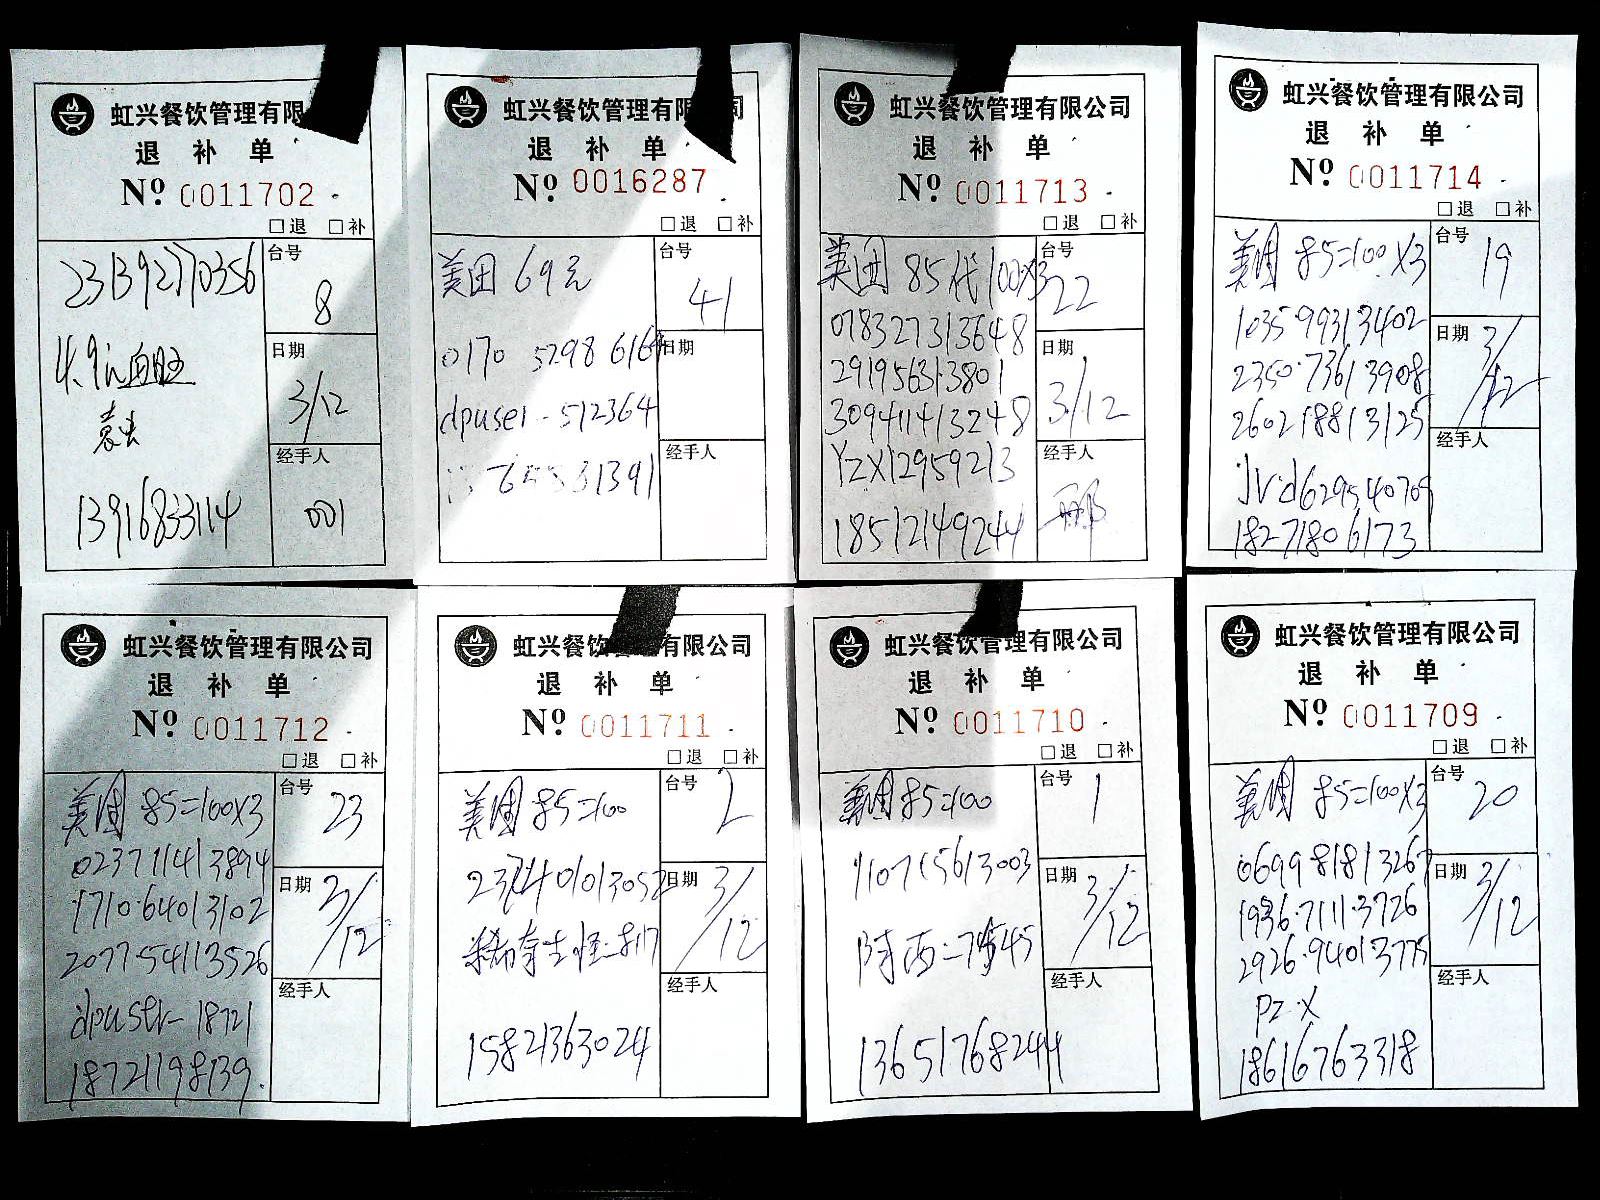 虹兴餐饮管理有限
退 补 单
Nº 0011702
□退 □补
台号
8
231392770356
4.9元血旺
日期
3/12
13916833114
经手人
001
虹兴餐饮管理有限 司
退 补 单
Nº 0016287
□退 □补
台号
41
美团 69元
0170 5298 6164
日期
dpuser-512364
经手人
虹兴餐饮管理有限公司
退 补 单
Nº 0011713
□退 □补
台号
22
美团 85代100×3
078327313648
291956313801
309411413248
YZX12959213
18512149244
日期
3/12
经手人
邴
虹兴餐饮管理有限公司
退 补 单
Nº 0011714
□退 □补
台号
19
美团 85=100×3
103599313402
2350·73613908
260218813125
JVd629540709
18271806173
日期
3/12
经手人
虹兴餐饮管理有限公司
退 补 单
Nº 0011712
□退 □补
台号
23
美团 85=100×3
023711413894
1710·64013102
207754113526
dpuser-18721
18721198139
日期
3/12
经手人
虹兴餐饮 有限公司
退 补 单
Nº 0011711
□退 □补
台号
2
美团 85=100
日期
3/12
15821363024
经手人
虹兴餐饮管理有限公司
退 补 单
Nº 0011710
□退 □补
台号
1
美团 85=100
110715613003
日期
3/12
13651768244
经手人
虹兴餐饮管理有限公司
退 补 单
Nº 0011709
□退 □补
台号
20
美团 85=100×3
069981813267
1936·7111·3726
2926·94013775
PZ·X
18616763318
日期
3/12
经手人